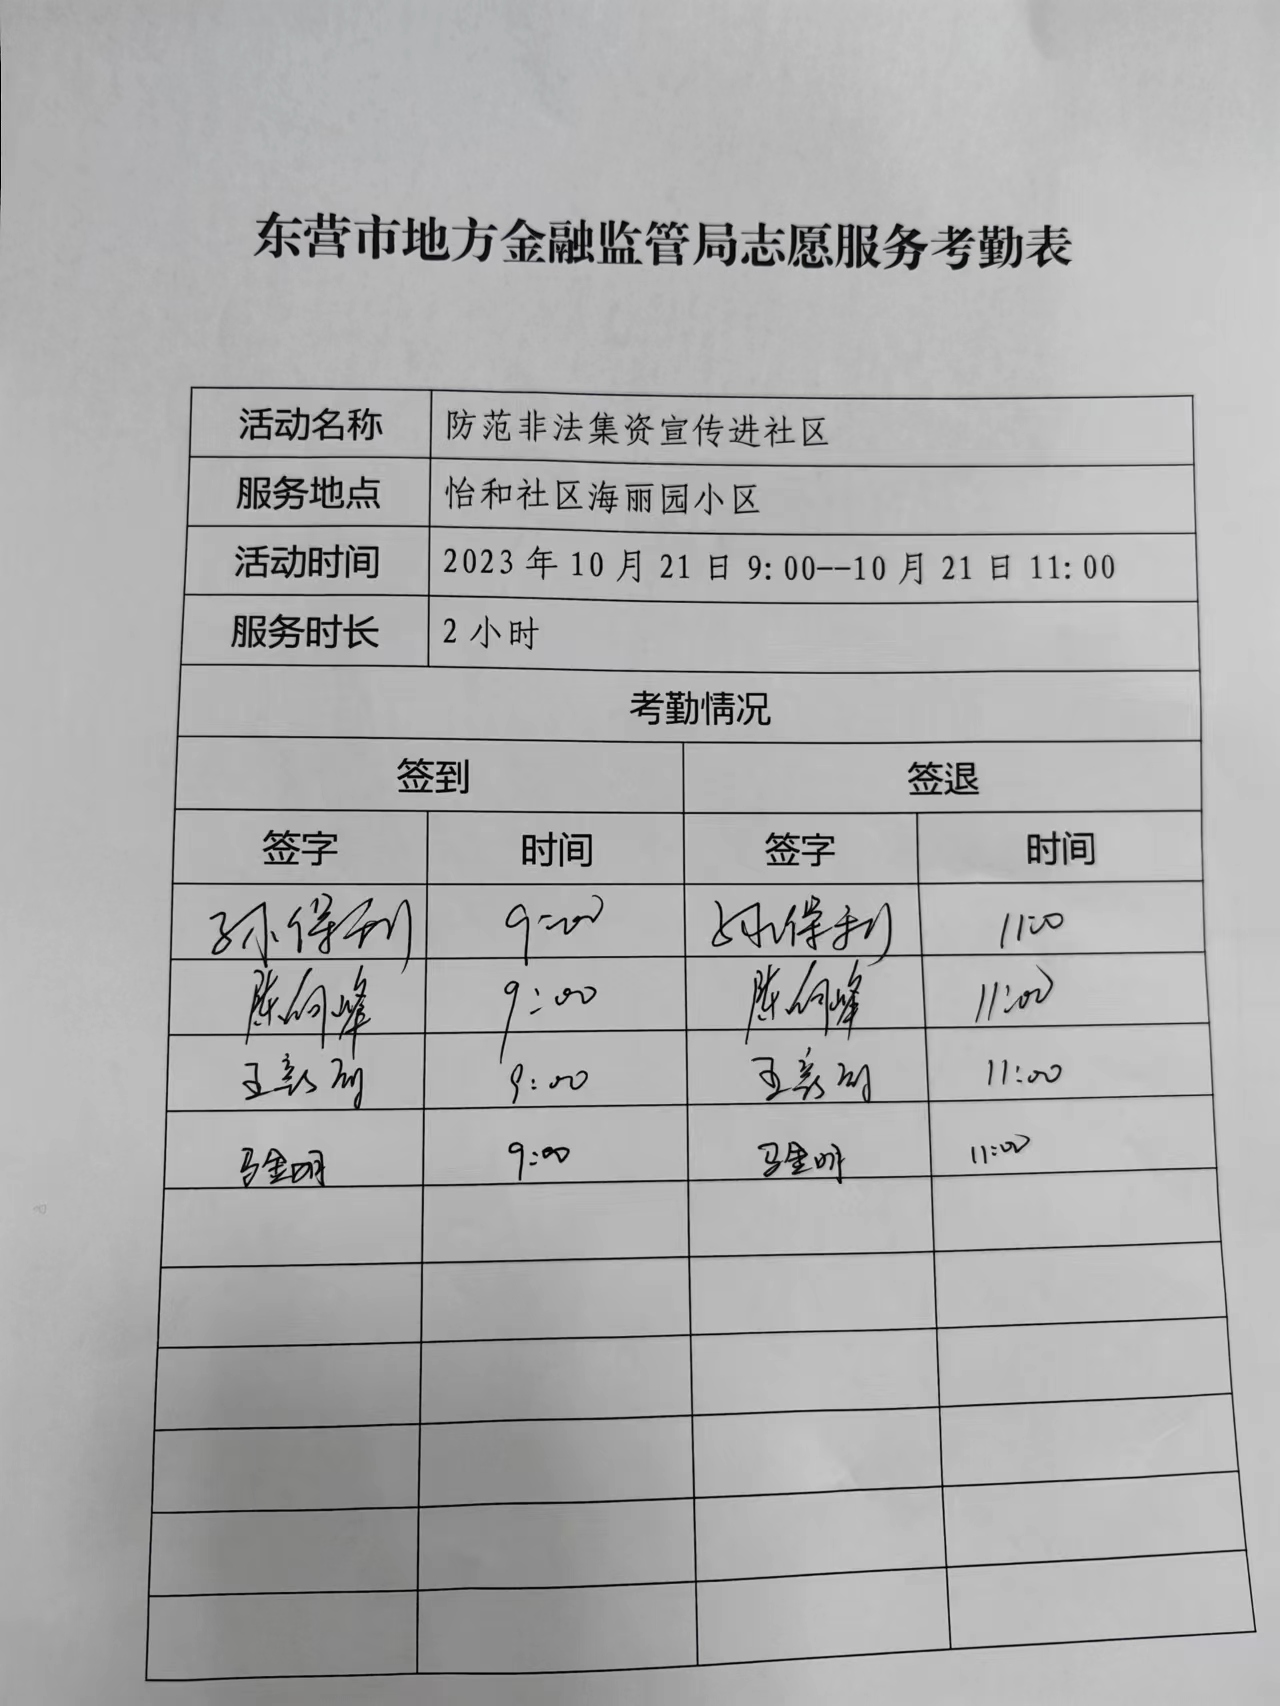 东营市地方金融监管局志愿服务考勤表
活动名称 防范非法集资宣传进社区
服务地点 怡和社区海丽园小区
活动时间 2023年10月21日9:00--10月21日11:00
服务时长 2小时
考勤情况
签到 签退
签字 时间 签字 时间
孙保利 9:00 孙保利 11:00
陈向峰 9:00 陈向峰 11:00
王 9:00 王 11:00
马金明 9:00 马金明 11:00